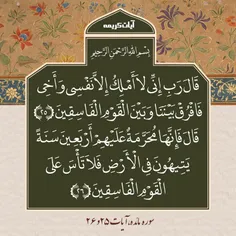 آیات کریمه
بِسْمِ اللَّهِ الرَّحْمَنِ الرَّحِيمِ
قَالَ رَبِّ إِنِّي لَا أَمْلِكُ إِلَّا نَفْسِي وَأَخِي
فَافْرُقْ بَيْنَنَا وَبَيْنَ الْقَوْمِ الْفَاسِقِينَ ﴿٢٥﴾
قَالَ فَإِنَّهَا مُحَرَّمَةٌ عَلَيْهِمْ أَرْبَعِينَ سَنَةً
يَتِيهُونَ فِي الْأَرْضِ فَلَا تَأْسَ عَلَى
الْقَوْمِ الْفَاسِقِينَ ﴿٢٦﴾
سوره مائده، آیات ۲۵ و ۲۶